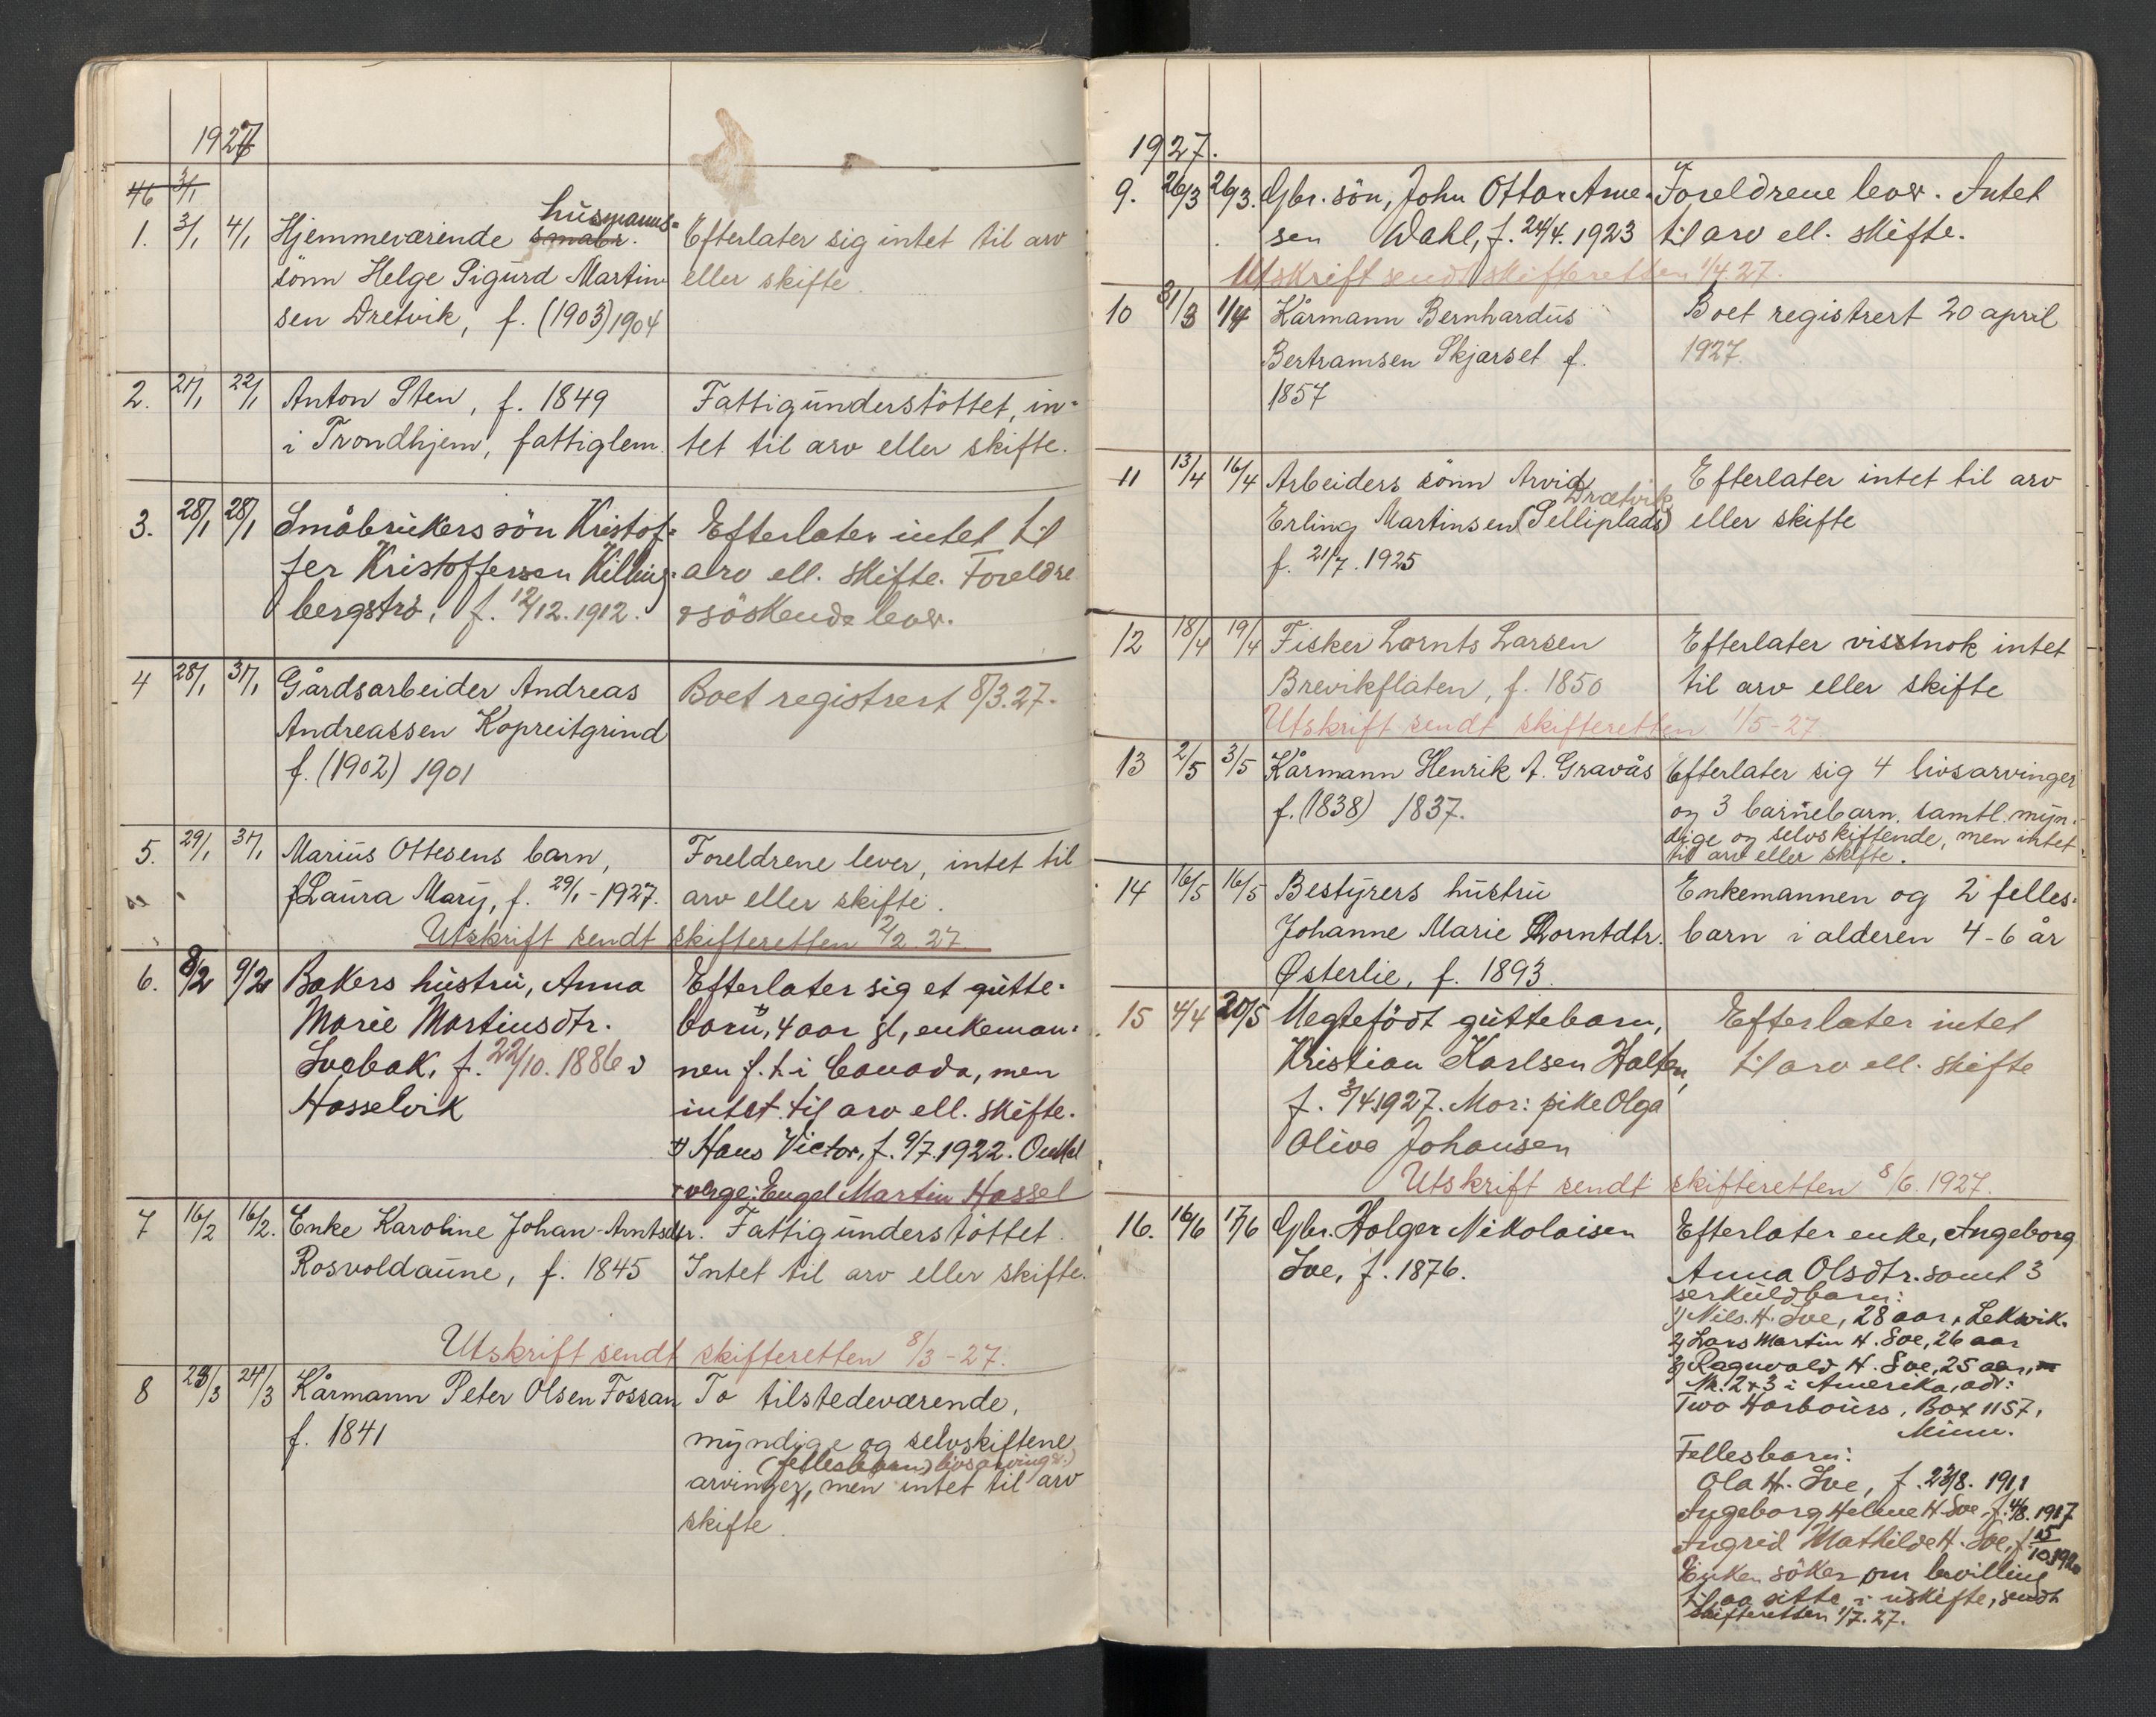 1927
46 3/1
1. 3/1 4/1 Hjemmeværende smabr. husmanns-
sönn Helge Sigurd Martin
sen Dretvik, f. (1903) 1904
Efterlater sig intet til arv
eller skifte.
2. 21/1 22/1 Anton Sten, f. 1849
i Trondhjem, fattiglem.
Fattigunderstöttet, in-
tet til arv eller skifte.
3. 28/1 28/1 Småbrukers sön Kristof-
fer Kristoffersen Killing-
bergströ, f. 12/12.1912.
Efterlater intet til
arv ell. skifte. Foreldre
& söskende lever.
4 28/1 31/1 Gårdsarbeider Andreas
Andreassen Kopreitgrind
f. (1902) 1901
Boet registrert 8/3.27.
5. 29/1 31/1 Marius Ottesens barn,
Laura Mary, f. 29/1-1927.
Foreldrene lever, intet til
arv eller skifte.
Utskrift sendt skifteretten 2/2 27
6. 8/2 9/2 Bakers hustru, Anna
Marie Martinsdtr.
Svebak, f. 22/10.1886
Hasselvik
Efterlater sig et gutte-
barn, 4 aar gl, enkeman-
nen f.t. i Canada, men
intet til arv ell. skifte.
Hans Victor, f. 9/7.1922. Onkel
verge: Engel Martin Hassel
7 16/2 16/2. Enke Karoline Johan-Arntsdtr.
Rosvoldaune, f. 1845
Fattigunderstöttet.
Intet til arv eller skifte.
Utskrift sendt skifteretten 8/3-27.
8 23/3 24/3 Kårmann Peter Olsen Fossan
f. 1841
To tilstedeværende,
myndige og selvskiftene
(fellesbarn) livsarvinger.)
arvinger, men intet til arv
skifte.
1927.
9. 26/3 26/3. Gbr. sön, John Ottar Arne-
sen Wahl, f. 24/4.1923
Foreldrene lever. Intet
til arv ell. skifte.
Utskrift sendt skifteretten 1/4.27.
10 31/3 1/4 Kårmann Bernhardus
Bertramsen Skjærset f.
1857
Boet registrert 20 april
1927.
11 13/4 16/4 Arbeiders sönn Arvid
Drætvik
Erling Martinsen (Selliplads)
f. 21/7.1925
Efterlater intet til arv
eller skifte
12 18/4 19/4 Fisker Lornts Larsen
Brevikflaten, f. 1850
Efterlater visstnok intet
til arv eller skifte
Utskrift sendt skifteretten 1/5-27.
13 2/5 3/5 Kårmann Henrik A. Gravås
f. (1838) 1837.
Efterlater sig 4 livsarvinger
og 3 barnebarn, samtl. myn-
dige og selvskiftende, men intet
til arv eller skifte.
14 16/5 16/5 Bestyrers hustru
Johanne Marie Lorntdtr.
Østerlie, f. 1893.
Enkemannen og 2 felles-
barn i alderen 4-6 år
15 4/4 20/5 Uegtefödt guttebarn,
Kristian Karlsen Halten,
f. 3/4.1927. Mor: pike Olga
Olive Johansen
Efterlater intet
til arv ell. skifte
Utskrift sendt skifteretten 8/6.1927.
16. 16/6 17/6 Gbr. Holger Nikolaisen
Soe, f. 1876.
Efterlater enke, Ingeborg
Anna Olsdtr. samt 3
serkuldbarn:
1) Nils. H. Soe, 28 aar, Leksvik.
2) Lars Martin H. Soe, 26 aar
3) Ragnvald H. Soe, 25 aar,
Nr. 2 & 3 i Amerika, adr:
Two Harbours, Box 1157,
Minn.
Fellesbarn:
Ola H. Soe, f. 23/8. 1911
Ingeborg Helene H. Soe, f. 4/8. 1917
Ingrid Mathilde H. Soe, f. 15/10.1920
Enken söker om bevilling
til aa sitte i uskifte, sendt
skifteretten 1/7.27.